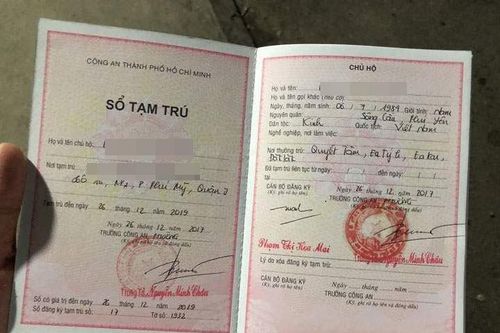 CÔNG AN THÀNH PHỐ HỒ CHÍ MINH
SỔ TẠM TRÚ
Họ và tên chủ hộ:
Nơi tạm trú
P. Phú Mỹ, Quận 7
Tạm trú đến ngày 26 tháng 12 năm 2019
Ngày 26 tháng 12 năm 2017
TRƯỞNG CÔNG AN PHƯỜNG
(Ký, ghi rõ họ tên và đóng dấu)
Nguyễn Minh Châu
Sổ có giá trị đến ngày 26 tháng 12 năm 2019
Sổ đăng ký tạm trú số: 17 Tờ số: 1932
CHỦ HỘ
Họ và tên:
Họ và tên gọi khác (nếu có):
Ngày, tháng, năm sinh: 06 / 9 / 1989 Giới tính: Nam
Nguyên quán: Sông Cầu, Phú Yên
Dân tộc: Kinh Quốc tịch: Việt Nam
Nghề nghiệp, nơi làm việc:
Nơi thường trú: Quyết Tâm,
Đăk Lăk
Đã tạm trú liên tục từ ngày
tại
Ngày 26 tháng 12 năm 2017
CÁN BỘ ĐĂNG KÝ TRƯỞNG CÔNG AN PHƯỜNG
(Ký, ghi rõ họ tên) (Ký, ghi rõ họ tên và đóng dấu)
Phạm Thị Hoa Mai
Nguyễn Minh Châu
Lý do xóa đăng ký tạm trú:
Ngày tháng năm
CÁN BỘ ĐĂNG KÝ TRƯỞNG CÔNG AN
(Ký, ghi rõ họ tên) (Ký, ghi rõ họ tên và đóng dấu)